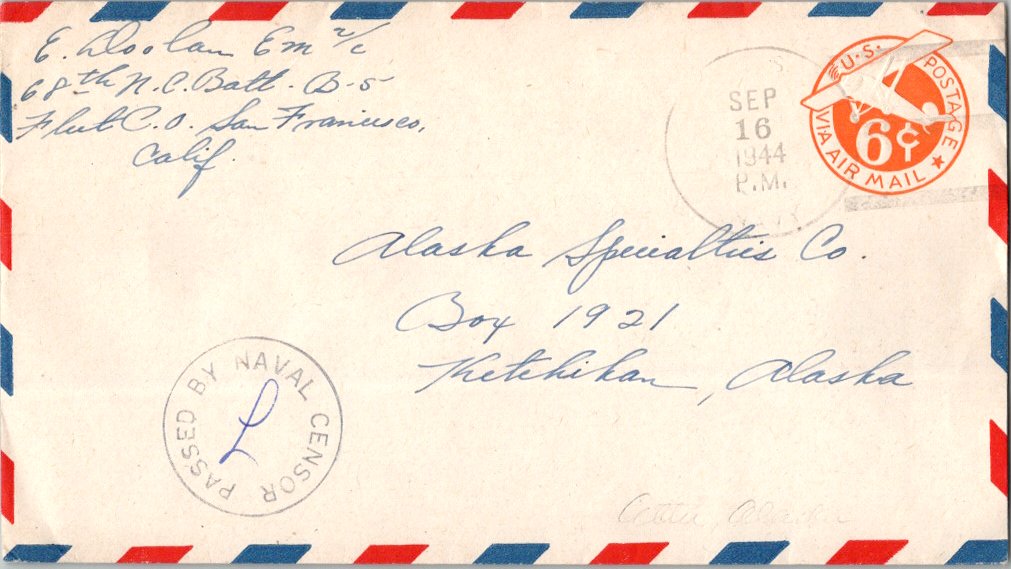 E. Doolan Em 2/c
68th N.C. Batt. B-5
Fleet P.O. San Francisco,
Calif.
SEP
16
1944
P.M.
U.S. POSTAGE
6¢
VIA AIR MAIL
Alaska Specialties Co.
Box 1921
Ketchikan, Alaska
PASSED BY NAVAL CENSOR
L
Attu, Alaska